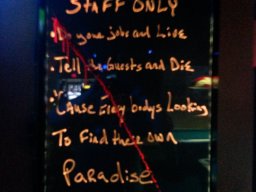 STAFF ONLY
• Do your jobs and Live
• Tell the Guests and Die
• 'Cause Every bodys Looking
To Find their own
Paradise